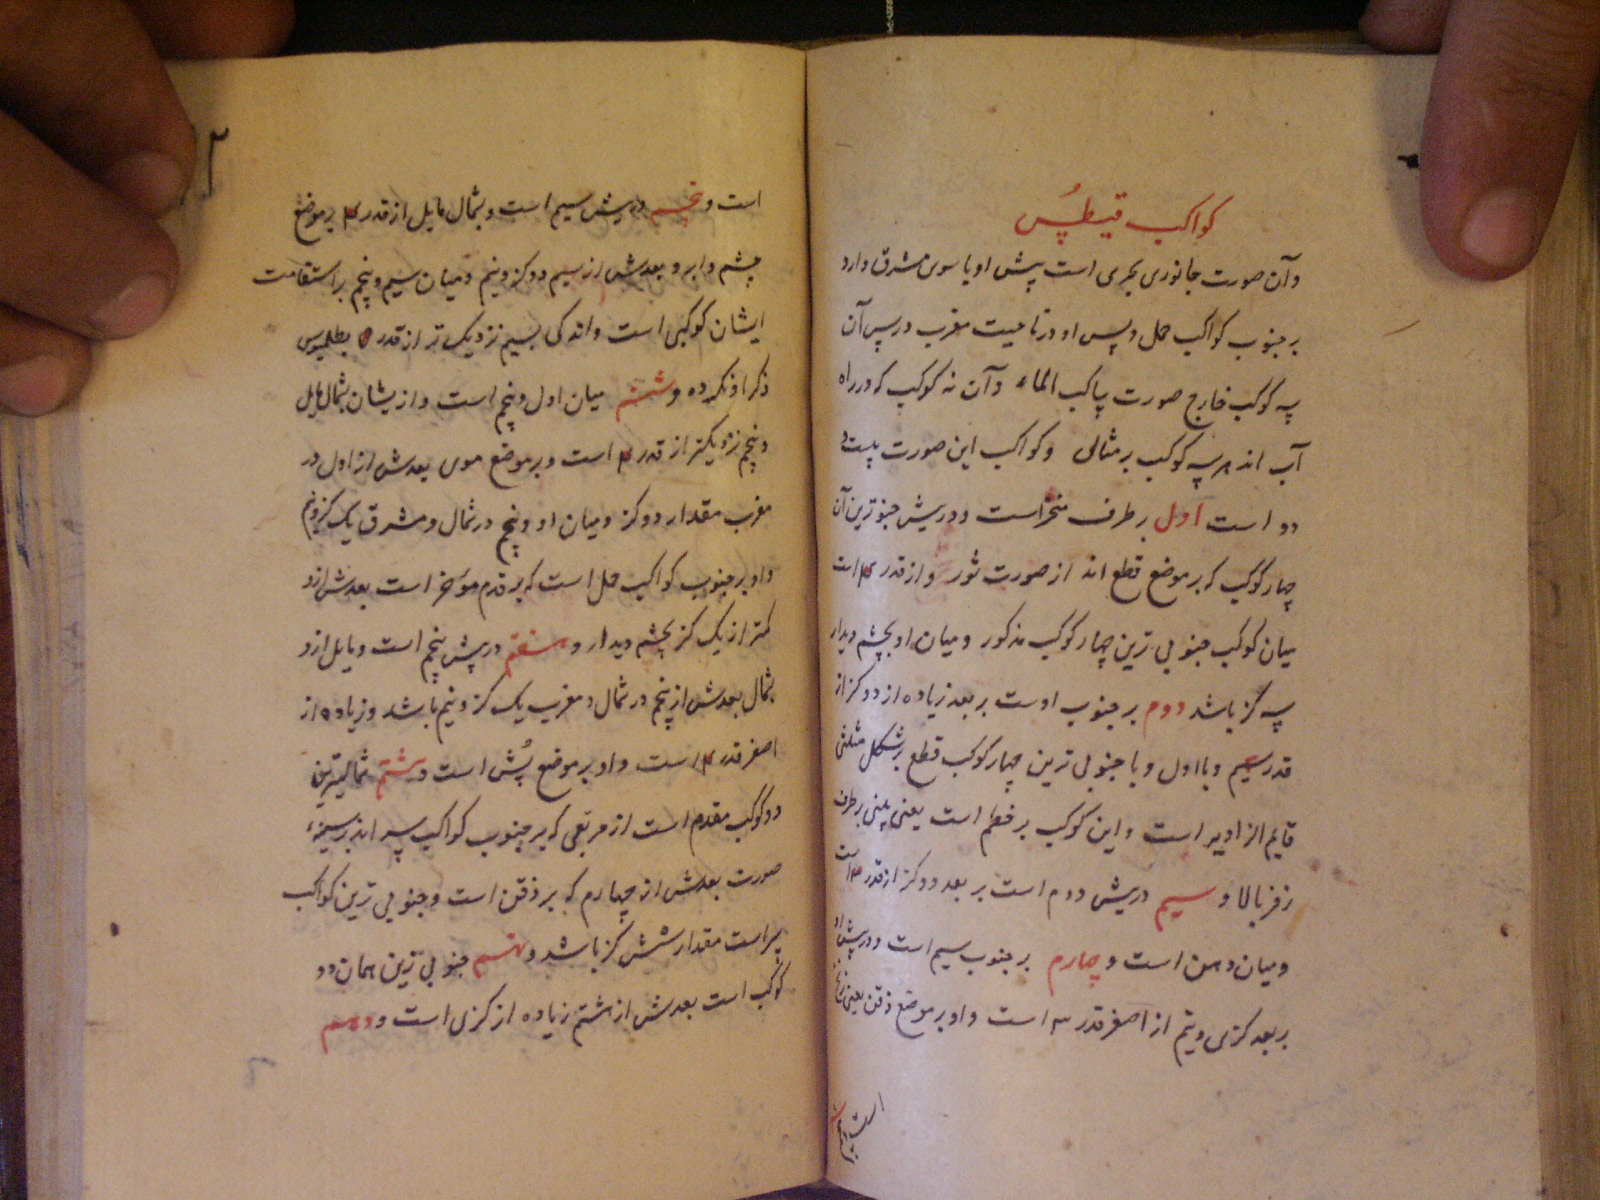 کواکب قیطپُس
وآن صورت جانوری بحری است پیش او با سوی مشرق دارد
بر جنوب کواکب حمل و پس او در ناحیت مغرب در پس آن
سه کوکب خارج صورت پاکب الماء وآن نه کوکب که در راه
آب اند هر سه کوکب بر مثالی وکواکب این صورت بیست و
دو است اول بر طرف منخر است و درپیش جنوبترین آن
چهار کوکب که بر موضع قطع اند از صورت ثور و از قدر ۴ است
میان کوکب جنوبی ترین چهار کوکب مذکور ومیان او بچشم دیدار
سه گز باشد دوم بر جنوب اوست بر بعد زیاده از دو گز از
قدر سیم و با اول و با جنوبی ترین چهار کوکب قطع بر شکل مثلثی
قایم الزاویه است و این کوکب بر خطم است یعنی بینی بر طرف
زفر بالا و سیم درپیش دوم است بر بعد دو گز از قدر ۳ است
و میان دهن است و چهارم بر جنوب سیم است و درپیش او
بر بعد گزی و نیم از اصغر قدر ۳ است و او بر موضع ذقن یعنی زنخ
است
است و پنجم درپیش سیم است و بشمال مایل از قدر ۴ بر موضع
چشم و ابرو بعدش از سیم دو گز و نیم و میان سیم و پنجم بر استقامت
ایشان کوکبی است و اندکی بسیم نزدیک تر از قدر ۵ بطلمیوس
ذکر او نکرده و ششم میان اول و پنجم است و از یشان بشمال مایل
و پنجم نزدیکتر از قدر ۴ است و بر موضع موی بعدش از اول در
مغرب مقدار دو گز و میان او و پنجم در شمال و مشرق یک گز و نیم
و او بر جنوب کواکب حمل است که بر قدم موَخر است بعدش ازو
کمتر از یک گز بچشم دیدار و هفتم درپیش پنجم است و مایل ازو
بشمال بعدش از پنجم در شمال و مغرب یک گز و نیم باشد و زیاده از
اصغر قدر ۴ است و او بر موضع پُش است و هشتم شمالیترین
دو کوکب مقدم است از مربعی که بر جنوب کواکب سر اند بر سینهٔ
صورت بعدش از چهارم که بر ذقن است و جنوبی ترین کواکب
سر است مقدار شش گز باشد و نهم جنوبی ترین همان دو
کوکب است بعدش از هشتم زیاده از گزی است و دهم